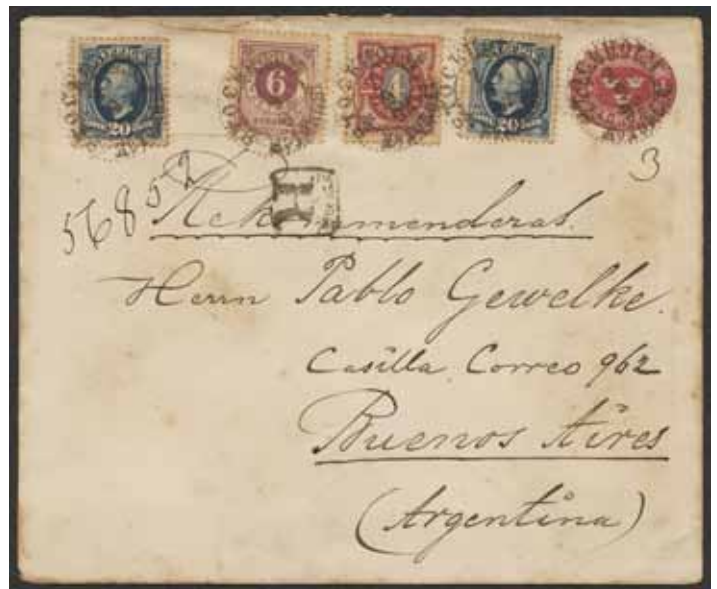 20
6
4
20
STOCKHOLM
3
56852
Rekommenderas.
Herrn Pablo Gewelke.
Casilla Correo 962
Buenos Aires
(Argentina)